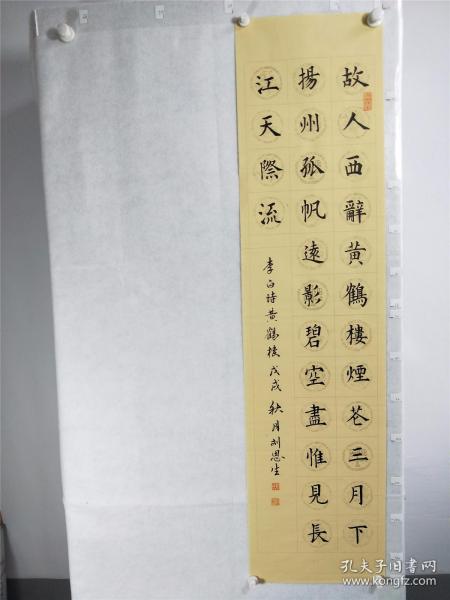 故人西辭黃鶴樓煙花三月下
揚州孤帆遠影碧空盡惟見長
江天際流
李白詩黃鶴樓戊戌秋月刘恩生
孔夫子旧书网
www.kongfz.com